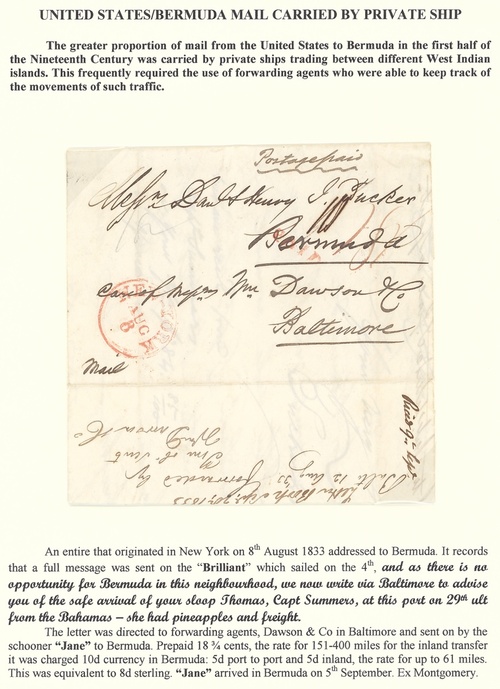 UNITED STATES/BERMUDA MAIL CARRIED BY PRIVATE SHIP
The greater proportion of mail from the United States to Bermuda in the first half of
the Nineteenth Century was carried by private ships trading between different West Indian
islands. This frequently required the use of forwarding agents who were able to keep track of
the movements of such traffic.
Postage paid
Messrs Danl & Henry J. Tucker
Bermuda
PAID
Care of Messrs Wm Dawson & Co
Baltimore
NEW YORK
AUG
8
Mail
Forwarded by
Wm Dawson & Co
Balto 12 Aug 33
An entire that originated in New York on 8th August 1833 addressed to Bermuda. It records
that a full message was sent on the "Brilliant" which sailed on the 4th, and as there is no
opportunity for Bermuda in this neighbourhood, we now write via Baltimore to advise
you of the safe arrival of your sloop Thomas, Capt Summers, at this port on 29th ult
from the Bahamas – she had pineapples and freight.
The letter was directed to forwarding agents, Dawson & Co in Baltimore and sent on by the
schooner "Jane" to Bermuda. Prepaid 18 ¾ cents, the rate for 151-400 miles for the inland transfer
it was charged 10d currency in Bermuda: 5d port to port and 5d inland, the rate for up to 61 miles.
This was equivalent to 8d sterling. "Jane" arrived in Bermuda on 5th September. Ex Montgomery.